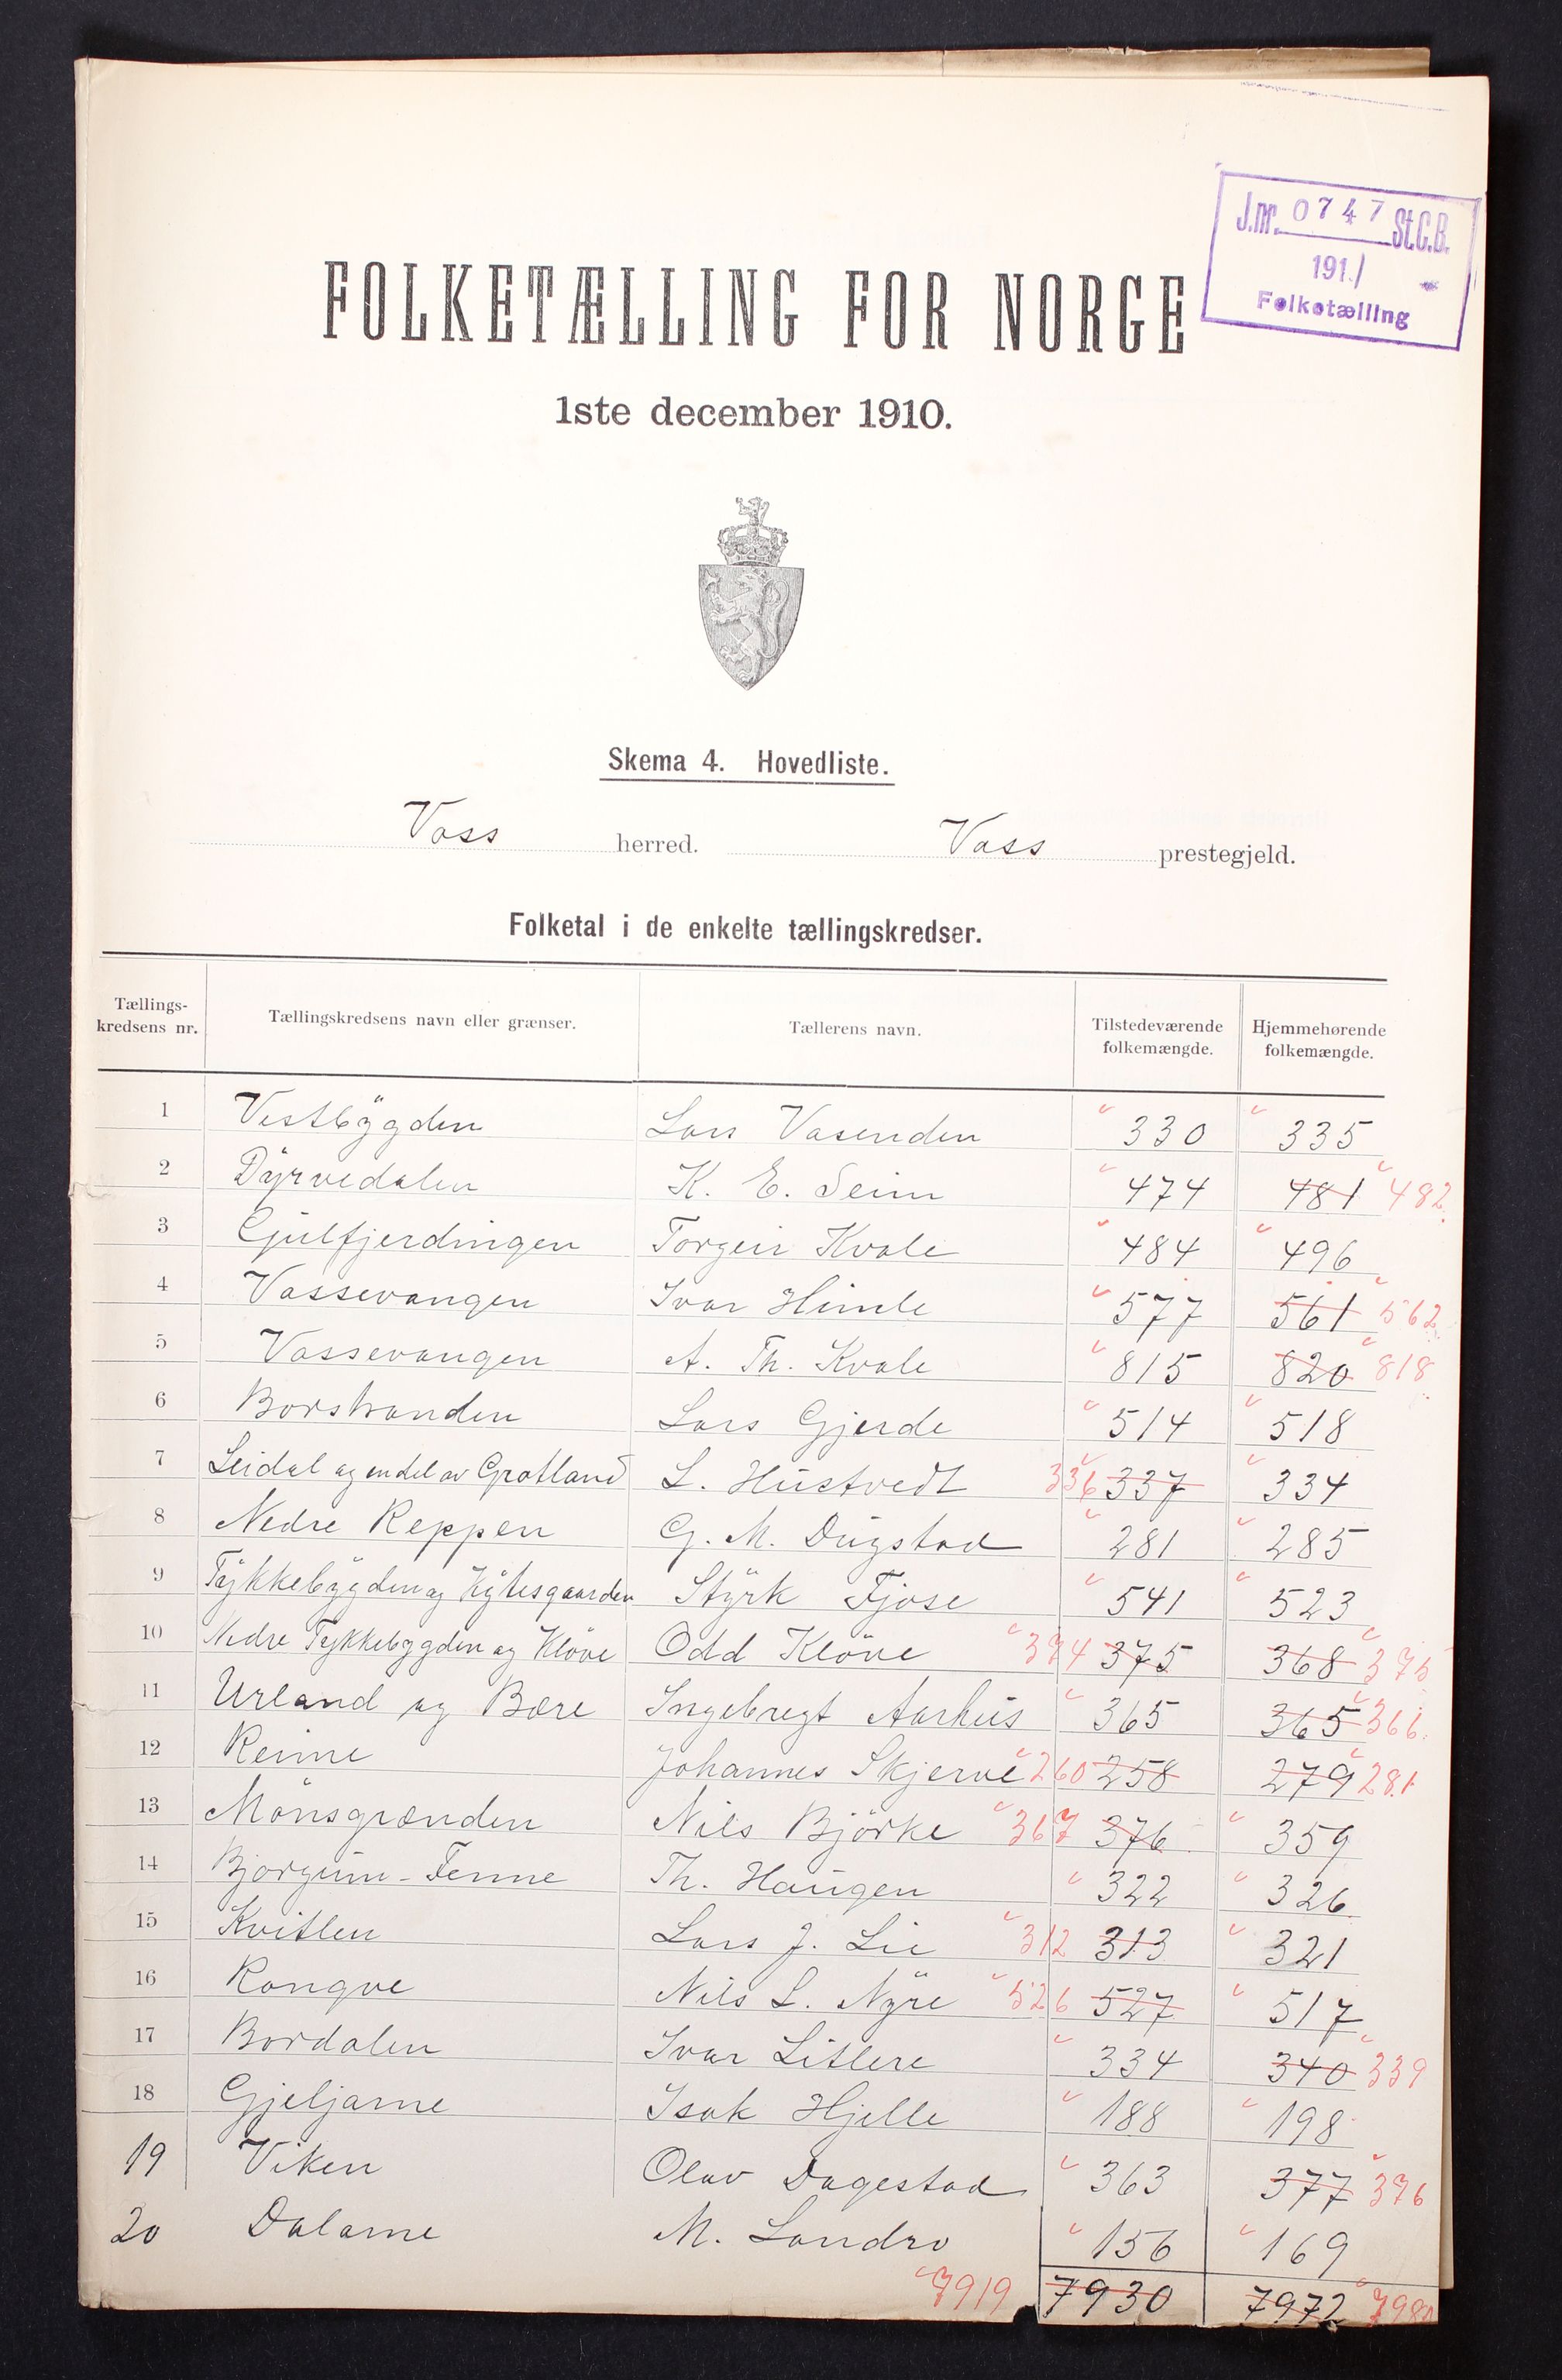 J.nr. 0747 St.C.B.
191.1
Folketælling
FOLKETÆLLING FOR NORGE
1ste december 1910.
Skema 4. Hovedliste.
Voss herred. Voss prestegjeld.
Folketal i de enkelte tællingskredser.
Tællings-kredsens nr. Tællingskredsens navn eller grænser. Tællerens navn. Tilstedeværende folkemængde. Hjemmehørende folkemængde.
1 Vestbygden Lars Vasenden 330 335
2 Dyrvedalen K. E. Seim 474 481 482
3 Gjulfjerdingen Torgeir Kvale 484 496
4 Vossevangen Ivar Himle 577 561 562
5 Vossevangen A. Th. Kvale 815 820 818
6 Borstranden Lars Gjerde 514 518
7 Leidal og endel av Grotland L. Hustvedt 336 337 334
8 Nedre Reppen G. M. Dugstad 281 285
9 Tykkebygden og Kytesgaarden Styrk Fjose 541 523
10 Nedre Tykkebygden og Kløve Odd Kløve 374 375 368 375
11 Urland og Bære Ingebregt Aarhus 365 365 366
12 Reime Johannes Skjerve 260 258 279 281
13 Mønsgrænden Nils Björke 367 376 359
14 Bjørgum-Tenne Th. Haugen 322 326
15 Kvitlen Lars J. Lie 312 313 321
16 Rongve Nils L. Nyre 526 527 517
17 Bordalen Ivar Litlere 334 340 339
18 Gjeljarne Isak Hjelle 188 198
19 Viken Olav Dagestad 363 377 376
20 Dalarne M. Landro 156 169
7919 7930 7972 7980